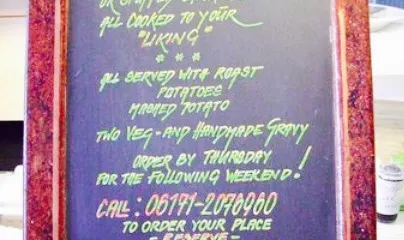 ALL COOKED TO YOUR
"LIKING"
* * *
ALL SERVED WITH ROAST
POTATOES
MASHED POTATO
TWO VEG - AND HANDMADE GRAVY
ORDER BY THURSDAY
FOR THE FOLLOWING WEEKEND!
CALL: 06171-2076960
TO ORDER YOUR PLACE
- RESERVE -